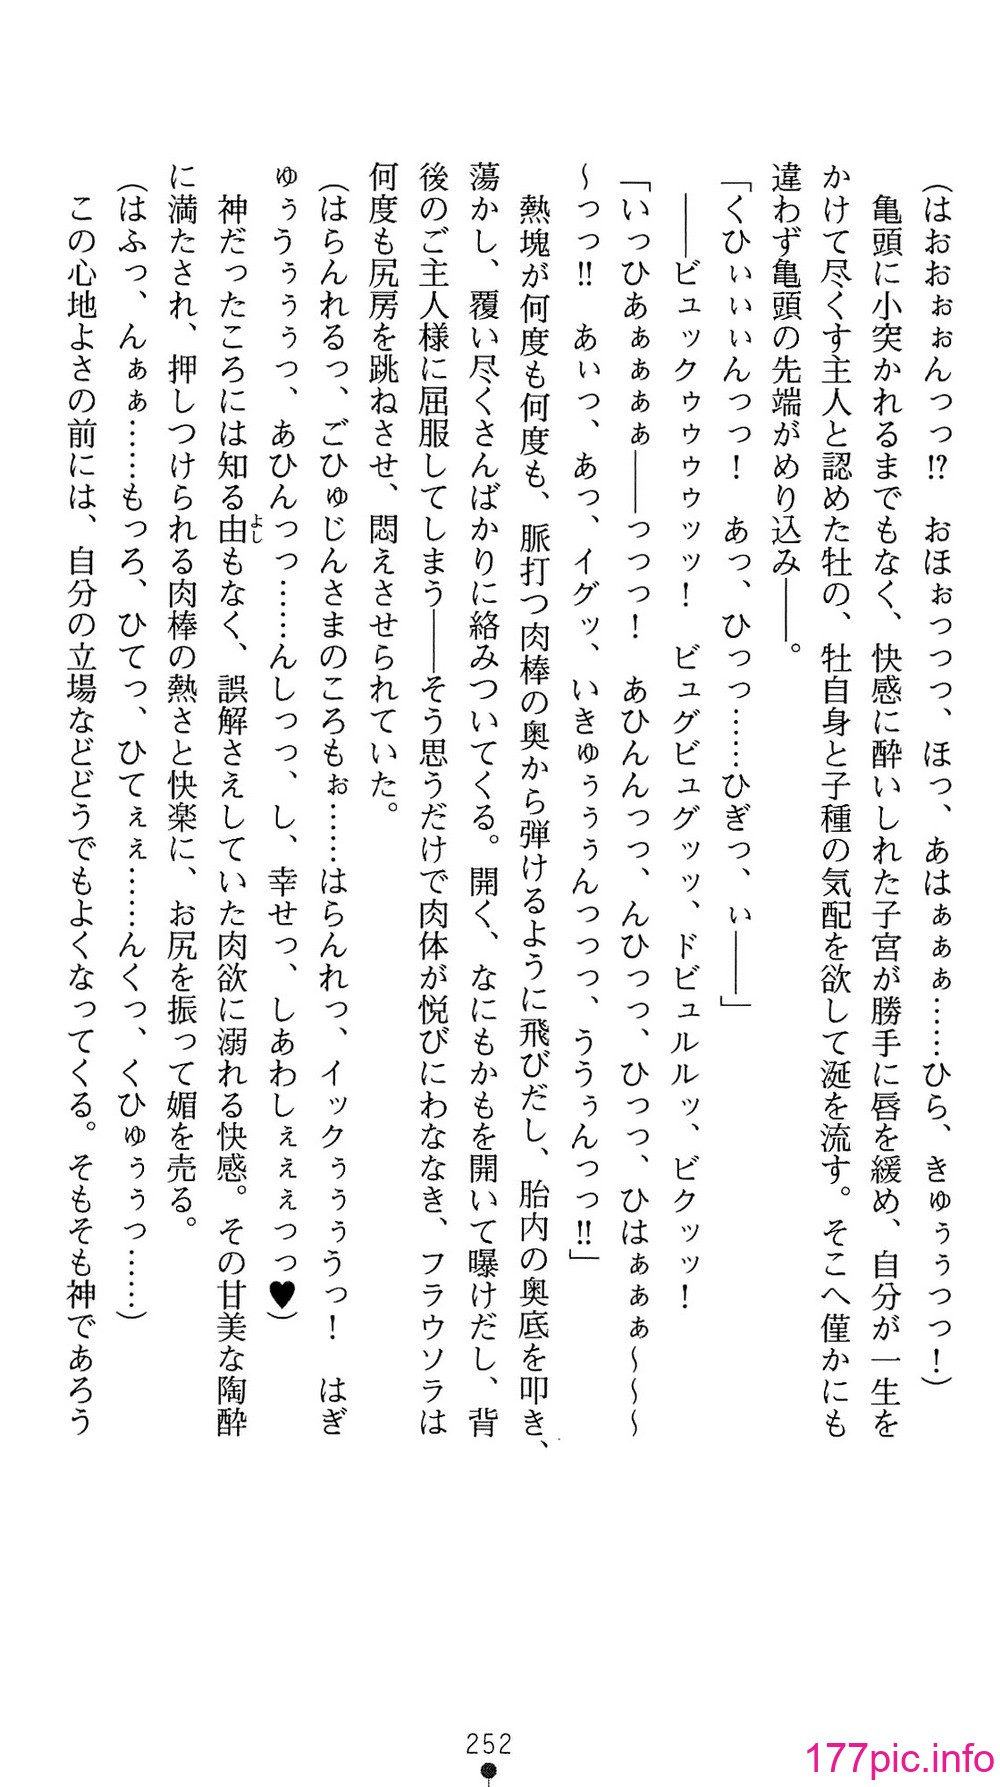 (はおおぉぉんっっ!?　おほぉっっっ、ほっ、あはぁぁぁ……ひら、きゅぅぅっっ！)
　亀頭に小突かれるまでもなく、快感に酔いしれた子宮が勝手に唇を緩め、自分が一生を
かけて尽くす主人と認めた牡の、牡自身と子種の気配を欲して涎を流す。そこへ僅かにも
違わず亀頭の先端がめり込み――。
「くひぃぃぃんっっ！　あっ、ひっっ……ひぎっ、ぃ――」
　――ビュックゥゥゥゥッッ！　ビュグビュグッッ、ドビュルルルッ、ビクッッ！
「いっひあぁぁぁぁ――っっっ！　あひんんっっ、んひっっ、ひっっ、ひはぁぁぁ～～～
～っっ!!　あぃっ、あっ、イグッ、いきゅぅぅぅんっっっ、ううぅんっっ!!」
　熱塊が何度も何度も、脈打つ肉棒の奥から弾けるように飛びだし、胎内の奥底を叩き、
蕩かし、覆い尽くさんばかりに絡みついてくる。開く、なにもかもを開いて曝けだし、背
後のご主人様に屈服してしまう――そう思うだけで肉体が悦びにわななき、フラウソラは
何度も尻房を跳ねさせ、悶えさせられていた。
(はらんれるっ、ごひゅじんさまのころもぉ……はらんれっ、イックぅぅぅうっ！　はぎ
ゅぅうぅぅぅっ、あひんっっ……んしっっ、し、幸せっ、しあわしぇぇぇっっ♥)
　神だったころには知る由よしもなく、誤解さえしていた肉欲に溺れる快感。その甘美な陶酔
に満たされ、押しつけられる肉棒の熱さと快楽に、お尻を振って媚を売る。
(はふっ、んぁぁ……もっろ、ひてっ、ひてぇぇ……んくっ、くひゅぅぅっ……)
　この心地よさの前には、自分の立場などどうでもよくなってくる。そもそも神であろう
252
177pic.info